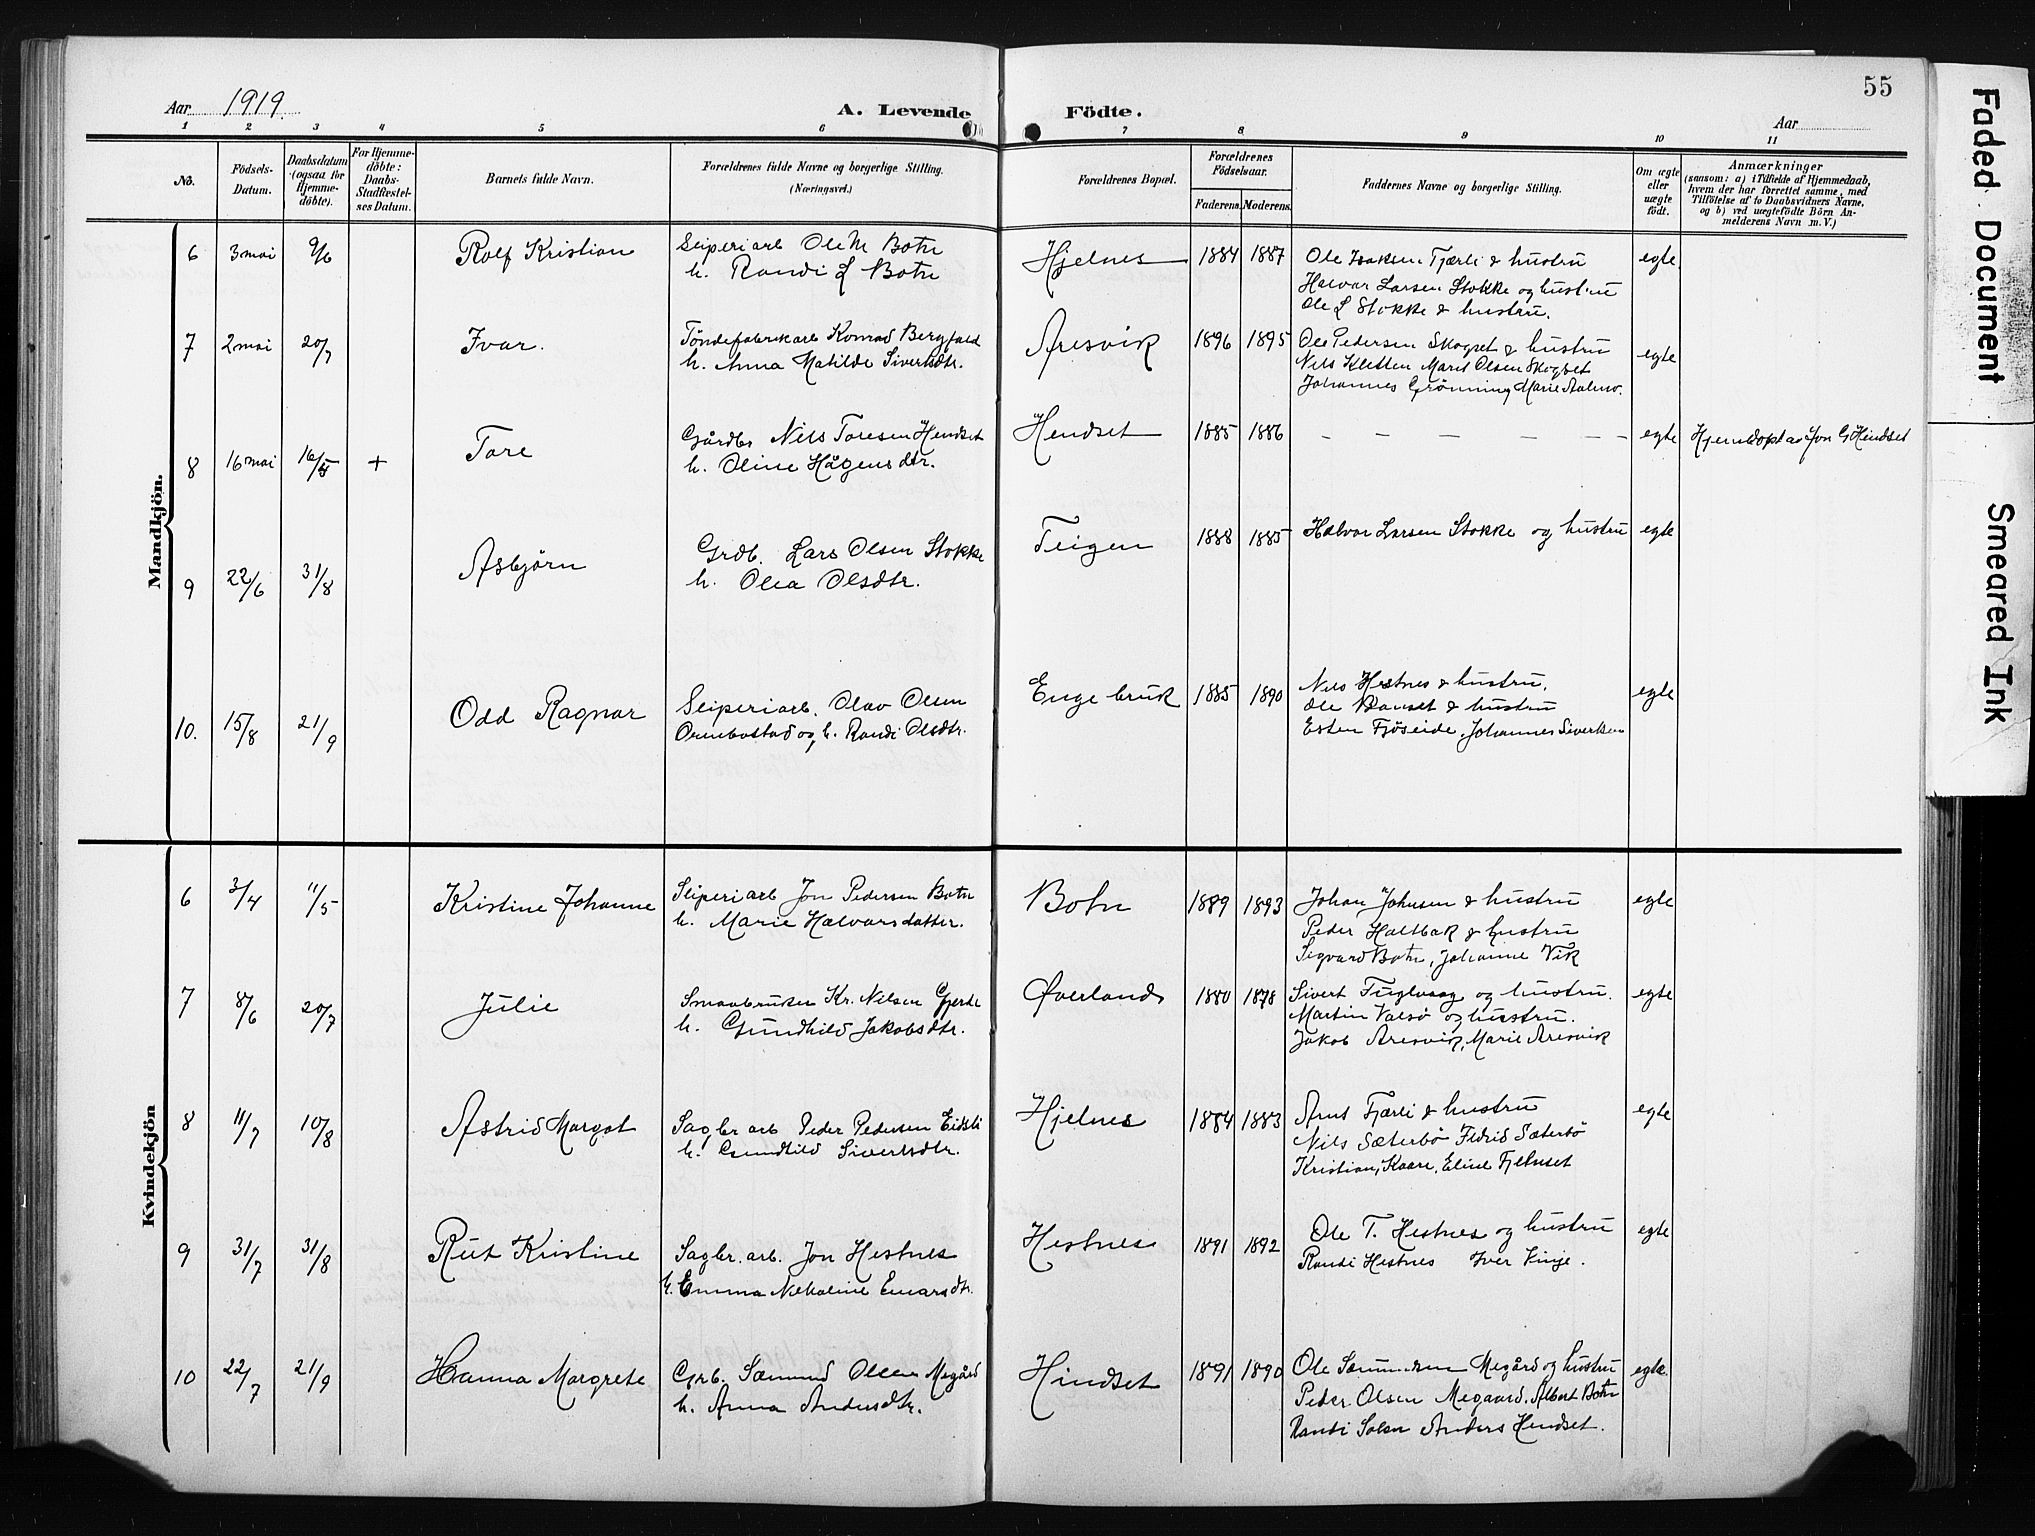 55
Aar 1919.
A. Levende Födte.
Aar
1 2 3 4 5 6 7 8 9 10 11
No.
Födsels-Datum.
Daabsdatum (ogsaa for Hjemmedöbte).
For Hjemmedöbte: Daabs-Stadfæstelses Datum.
Barnets fulde Navn.
Forældrenes fulde Navne og borgerlige Stilling.
(Næringsvei.)
Forældrenes Bopæl.
Forældrenes Födselsaar.
Faderens. Moderens.
Faddernes Navne og borgerlige Stilling.
Om ægte eller uægte födt.
Anmærkninger
(saasom: a) i Tilfælde af Hjemmedaab, hvem der har forrettet samme, med Tilföielse af to Daabsvidners Navne, og b) ved uægtefödte Börn Anmelderens Navn m.V.)
Mandkjön.
6 3 mai 9/6 Rolf Kristian
Sliperiarb Ole M Botn
h. Randi L Botn
Hjelnes 1884 1887
Ole Isaksen Fjærli & hustru
Halvar Larsen Stokke og hustru
Ole L Stokke & hustru.
egte
7 2 mai 20/7 Ivar.
Tøndefabrikarb Konrad Bergfald
h. Anna Matilde Sivertsdtr.
Aresvik 1896 1895
Ole Pedersen Skogset & hustru
Nils Kletten Marit Olsen Skogset
Johannes Grønning Marie
egte
8 16 mai 16/5 + Tore
Gårdbr Nils Toresen Hendset
h. Oline Hågensdtr.
Hendset 1885 1886
— — — — — —
egte
Hjemdøpt av Jon G Hendset
9 22/6 31/8 Asbjørn
Grdb. Lars Olsen Stokke
h. Olea Olsdtr.
Teigen 1888 1885
Halvar Larsen Stokke og hustru
egte
10. 15/8 21/9 Odd Ragnar
Sliperiarb. Olav Olsen
Ormbostad og h. Randi Olsdtr.
Engebruk 1885 1890
Nils Hestnes & hustru.
Ole Banset & hustru
Esten Fjøseide, Johannes Sivertsen
egte
Kvindekjön
6 3/4 11/5 Kristine Johanne
Sliperiarb Jon Pedersen Botn
h. Marie Halvarsdatter.
Botn 1889 1893
Johan Johnsen & hustru
Peder Holtbak & hustru
Sigvard Botn, Johanne Vik
egte
7 8/6 20/7 Julie
Smaabruker Kr. Nilsen Gjerde
h. Gundhild Jakobsdtr.
Øverland 1880 1878
Sivert Fuglvaag og hustru.
Martin Valsø og hustru.
Jakob Aresvik, Marie Aresvik
egte
8 11/7 10/8 Astrid Margot
Sagbr arb Peder Pedersen Eidsli
h. Gundhild Sivertsdtr.
Hjelnes 1884 1883
Arnt Fjærli & hustru
Nils Sæterbø Fredrid Sæterbø
Kristian, Kaare, Eline
egte
9 31/7 31/8 Rut Kristine
Sagbr. arb. Jon Hestnes
h. Emma Nikoline Einarsdtr.
Hestnes 1891 1892
Ole T. Hestnes og hustru
Randi Hestnes Iver Vinje.
egte
10 22/7 21/9 Hanna Margrete
Grb. Sæmund Olsen Megård
h. Anna Andersdtr.
Hindset 1891 1890
Ole Sæmundsen Megård og hustru
Peder Olsen Megaard. Albert Botn
Randi Anders Hendset.
egte
Faded Document
Smeared Ink